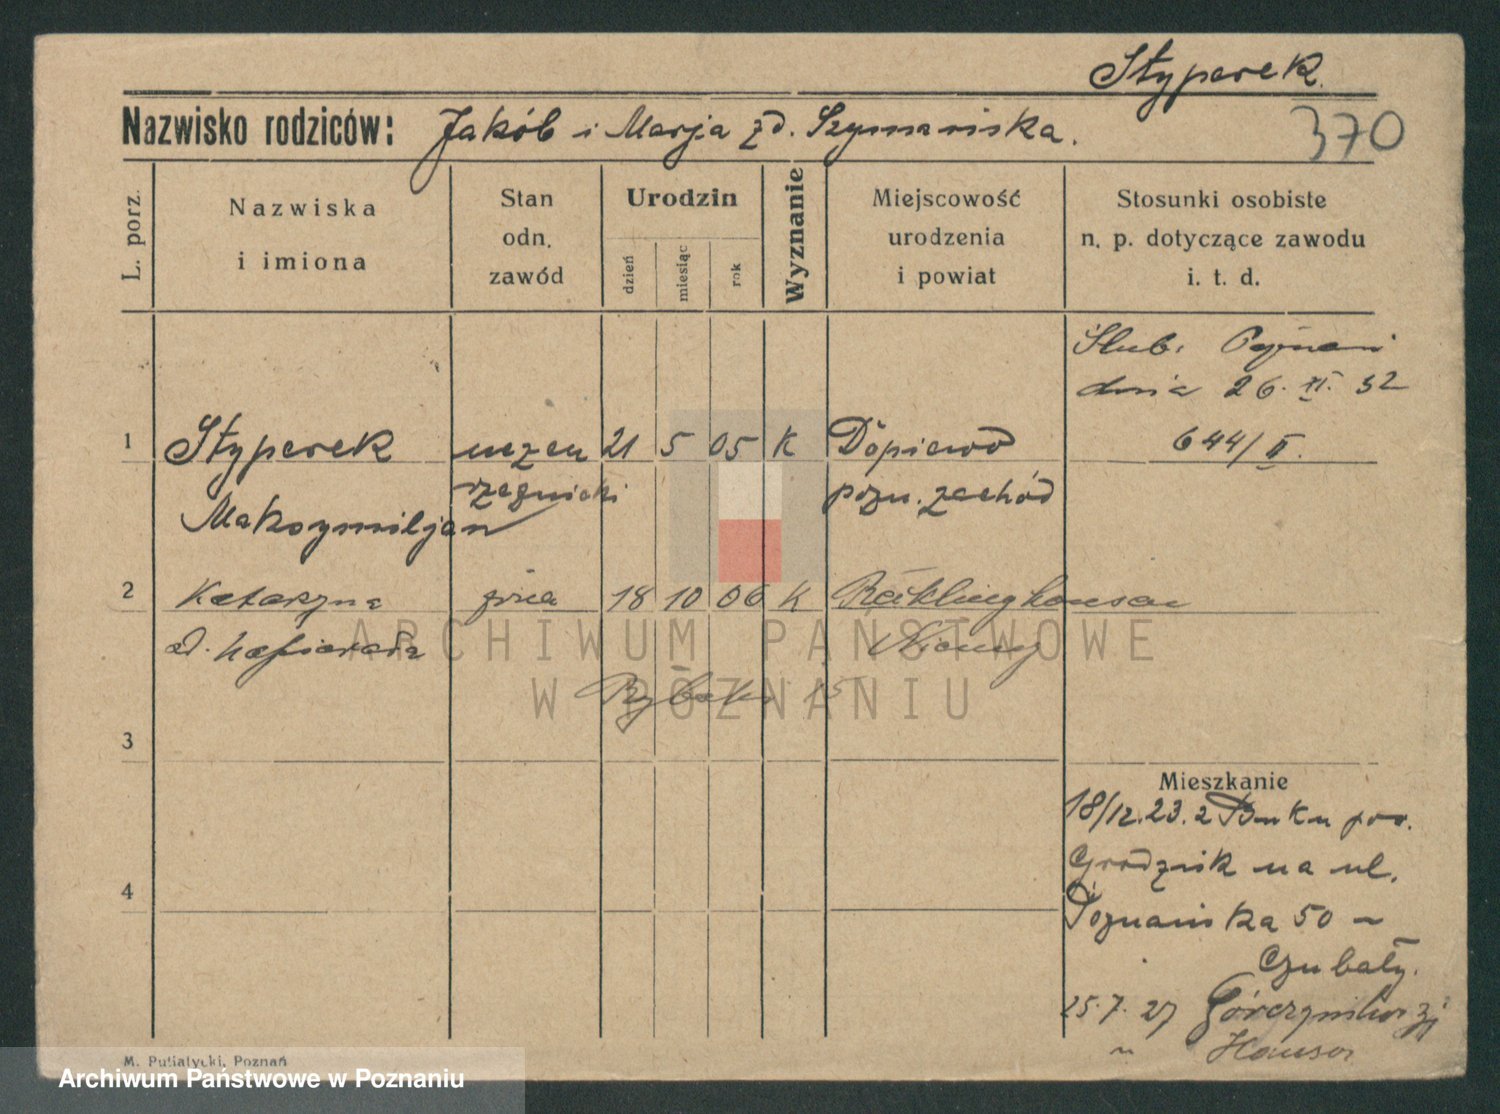 Styperek.
Nazwisko rodziców: Jakób i Marja zd. Szymańska.
370
L. porz.
Nazwiska
i imiona
Stan
odn.
zawód
Urodzin
dzień
miesiąc
rok
Wyznanie
Miejscowość
urodzenia
i powiat
Stosunki osobiste
n. p. dotyczące zawodu
i. t. d.
Ślub. Poznań
dnia 26. XI. 32
644/II.
1 Styperek uczeń 21 5 05 K Dopiewo
rzeźnicki pozn. zachód
Maksymiljan
2 Katarzyna żona 18 10 06 K Recklinghausen
zd. Niemcy
Rybaki 15
3
Mieszkanie
18/12.23. z Buku pow.
Grodzisk na ul.
4
Poznańska 50 –
Czubały.
25.7.27
" Hauser
M. Putiatycki, Poznań
ARCHIWUM PAŃSTWOWE
W POZNANIU
Archiwum Państwowe w Poznaniu